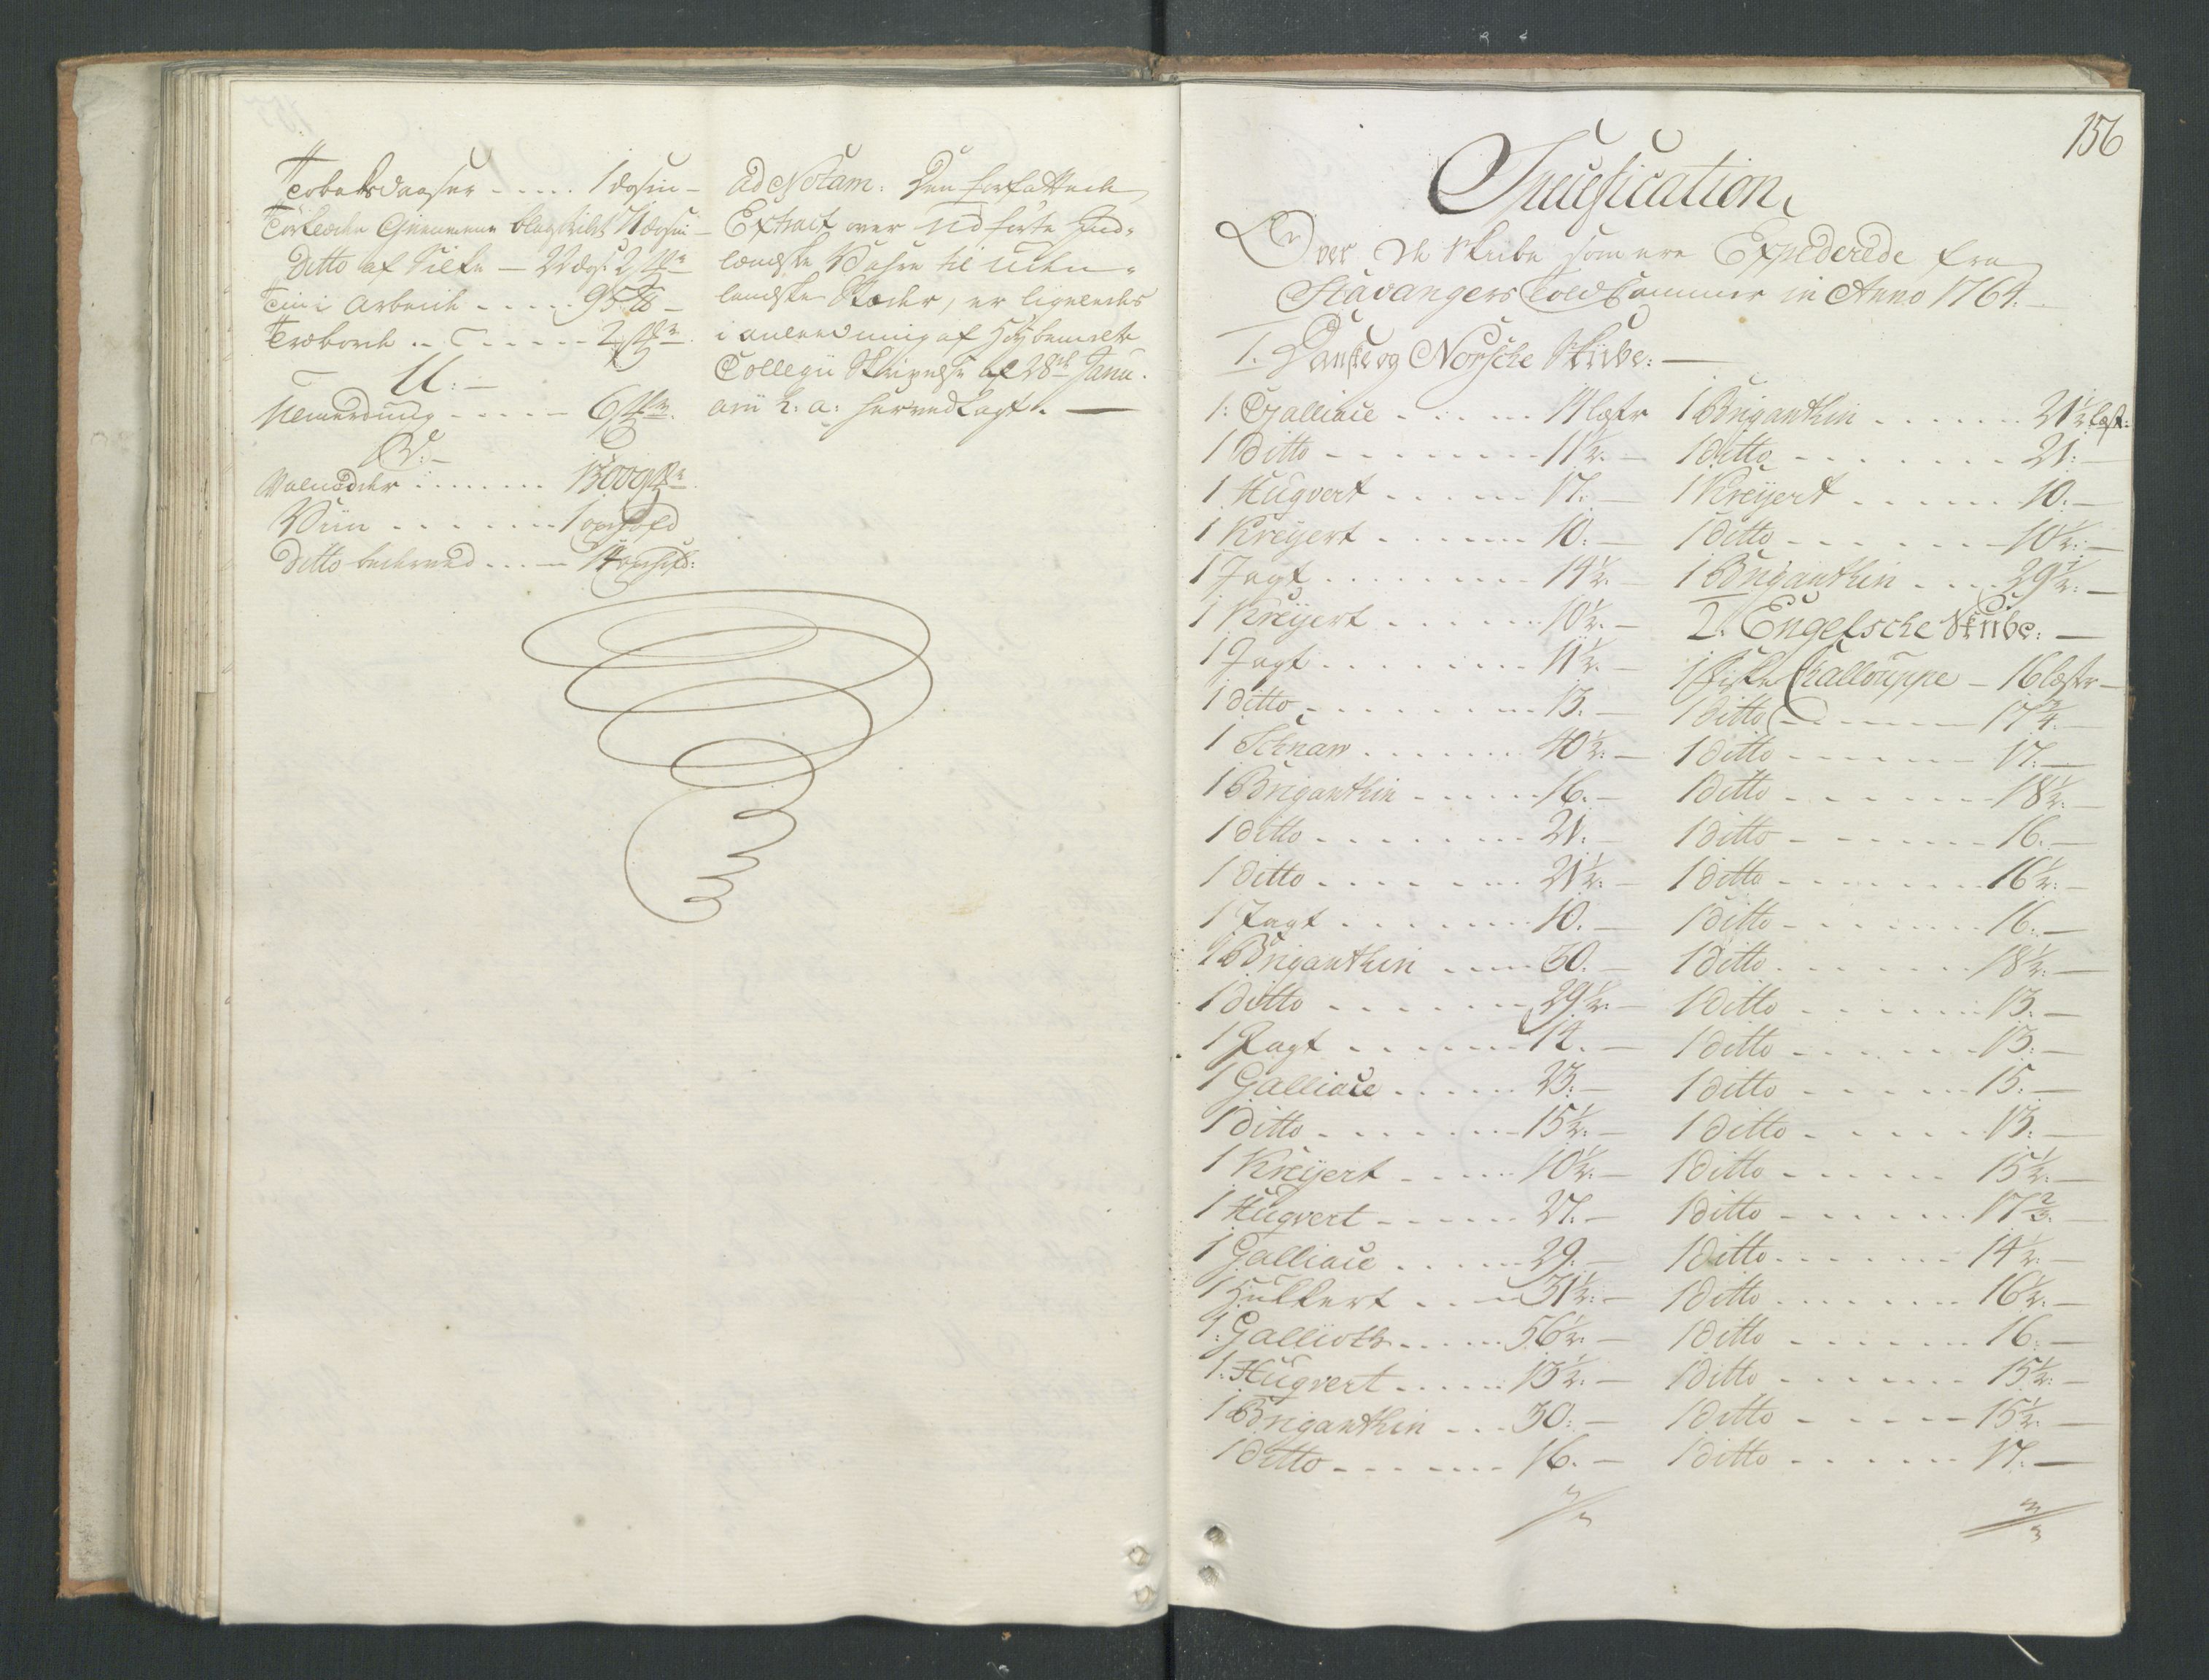 Tobaksdaaser ..... 1 dosin -
Ditto af Silke - 22 dos: 2 st
Tin i Arbeide ..... 95 ℔ -
U: -
V: -
Valnødder ........ 1300
Viin ....... 1 oxhofd
Ditto ..... 14 oxhofd:
Ad Notam: Den forfattede
Extract over udførte Ind-
landske Vahre til uden-
landske Stæder, er ligeledes
i anledning af Høybemelte
Collegii Skrivelse af 28de Janu-
arii h: a: herved lagt. -
156
Specification
Over de Skibe som ere Expederede fra
Stavangers Told Cammer in Anno 1764. -
1. Danske og Norsche Skibe: -
1: Galliace ..... 11 læster
1 Ditto ....... 11½. -
1 Hugvert ..... 17. -
1 Kreyert ..... 10. -
1 Jagt ....... 14½. -
1 Kreyert ..... 10½. -
1 Jagt ....... 11½. -
1 ditto ....... 13. -
1 Schnaw ...... 40½: -
1 Briganthin ..... 16. -
1 ditto ....... 21. -
1 ditto ....... 21½: -
1 Jagt ....... 10. -
1 Briganthin .... 30. -
1 ditto ....... 29½: -
1 Jagt ...... 12. -
1 Galliace ..... 23: -
1 ditto ...... 15½: -
1 Kreyert ..... 10½: -
1 Hugvert ..... 27. -
1 Galliace ..... 29. -
1 Hukkert .... 31½: -
1: Gallioth ..... 56½: -
1: Hugvert ..... 13½: -
1 Briganthin ... 30: -
1 ditto ...... 16. -
1 Briganthin ...... 21½ læst:
1 ditto ....... 21: -
1 Kreyert ..... 10: -
1 ditto ....... 10½: -
1 Briganthin .... 29½: -
2. Engelsche Skibe: -
1 Fiske Challouppe - 16 læster -
1 ditto ...... 17¾. -
1 ditto ...... 17. -
1 ditto ...... 18½. -
1 ditto ...... 16. -
1 ditto ...... 16½: -
1 ditto ...... 16. -
1 ditto ...... 18½. -
1 ditto ...... 13. -
1 ditto ...... 13. -
1 ditto ...... 15. -
1 ditto ...... 13. -
1 ditto ...... 15½. -
1 ditto ...... 17⅔. -
1 ditto ...... 14½. -
1 ditto ...... 16½. -
1 ditto ...... 16. -
1 ditto ...... 15½: -
1 ditto ...... 15½. -
1 ditto ...... 17. -